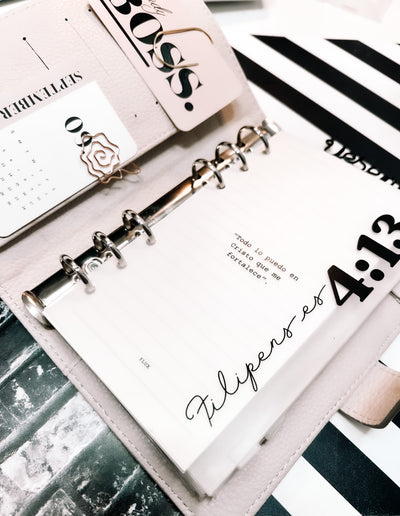 BOSS.
SEPTEMBER
"Todo lo puedo en
Cristo que me
fortalece".
Filipenses
4:13